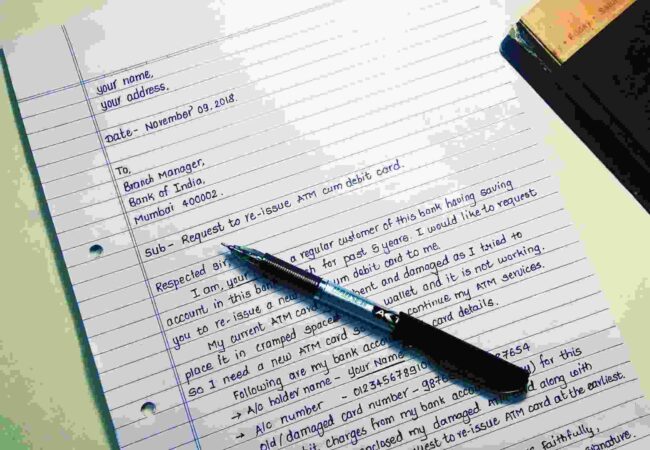 your name,
your address.
Date- November 09, 2018.
To,
Branch Manager,
Bank of India,
Mumbai 400002.
Sub- Request to re-issue ATM cum debit card.
Respected sir
I am, your a regular customer of this bank having saving
account in this bank for past 5 years. I would like to request
you to re-issue a new debit card to me.
My current ATM card bent and damaged as I tried to
place it in cramped space wallet and it is not working.
So I need a new ATM card so continue my ATM services.
Following are my bank card details.
→ A/c holder name - Your Name
→ A/c number - 012345678910
Old/damaged card number - 987654
charges from my bank account for this
enclosed my damaged card along with
request to re-issue ATM card at the earliest.
faithfully,
signature.